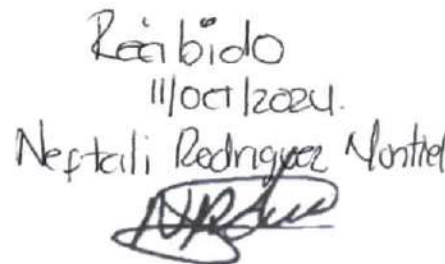 Recibido
11/oct/2024.
Neftali Rodriguez Montiel